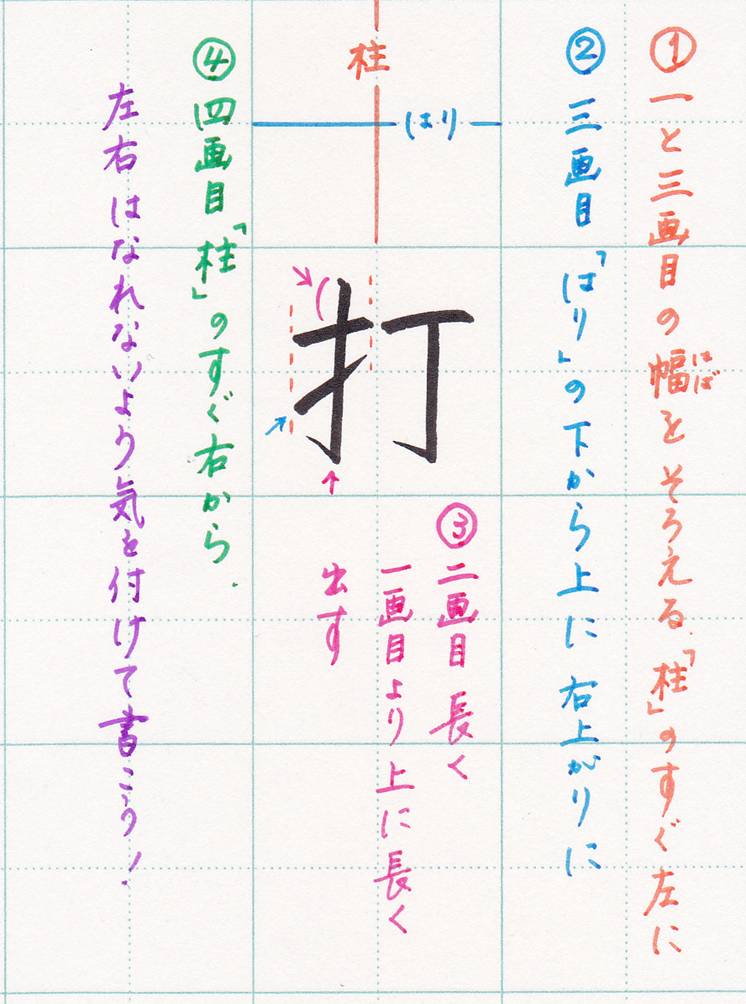 ①一と三画目の幅をそろえる「柱」のすぐ左に
はば
②三画目「はり」の下から上に右上がりに
柱
はり
打
③二画目長く
一画目より上に長く
出す
④四画目「柱」のすぐ右から.
左右はなれないよう気を付けて書こう!